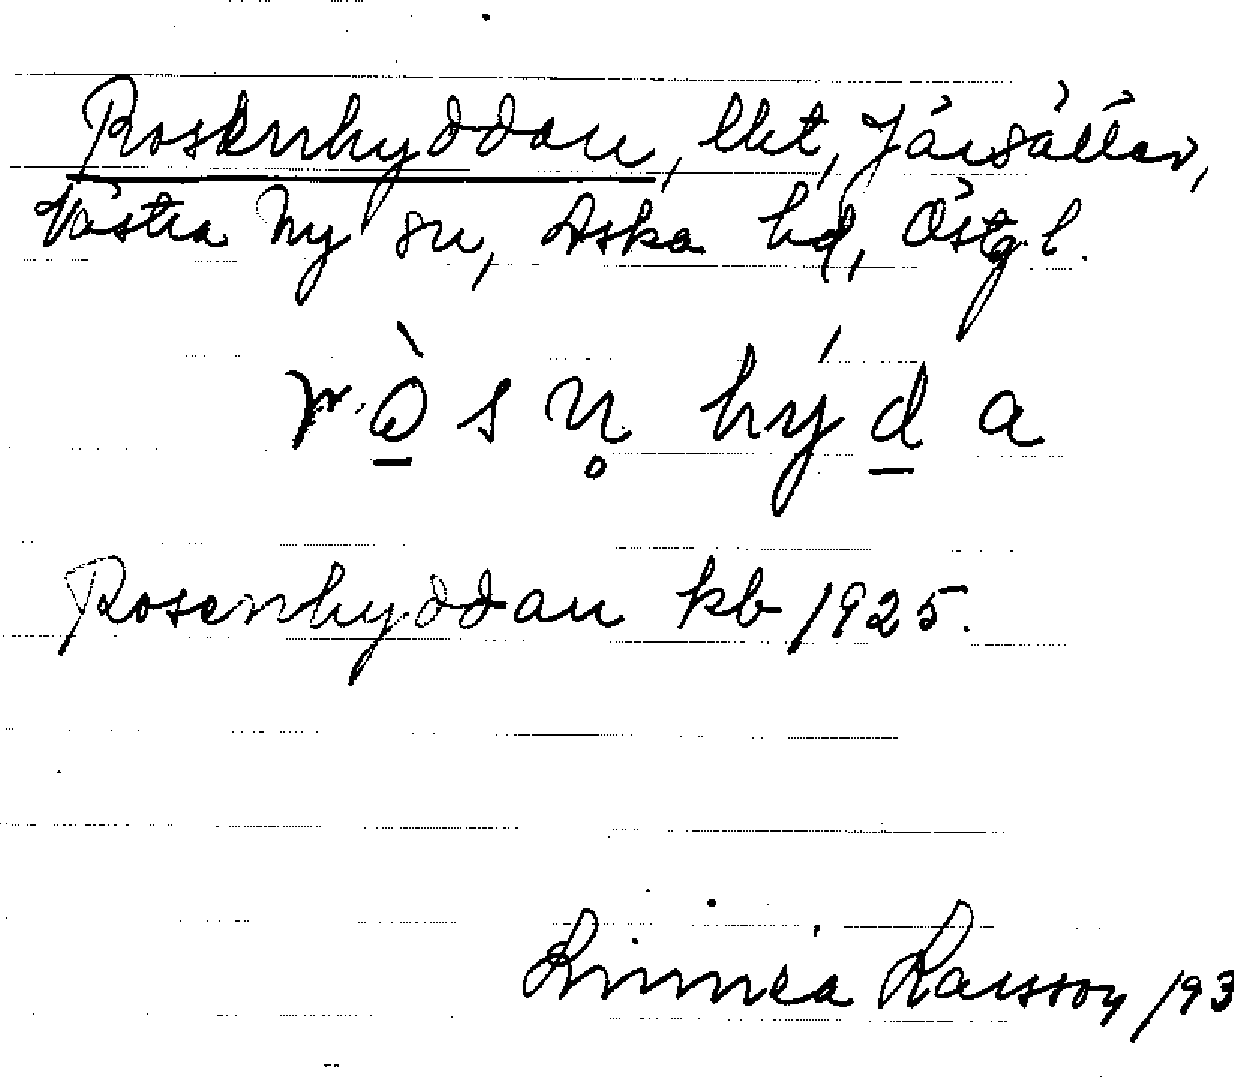 Rosenhyddan, lht, Järsätter,
Västra Ny sn, Aska hd, Östg. l.
ròsn̥ hýda
Rosenhyddan kb 1925.
Linnéa Larsson /93